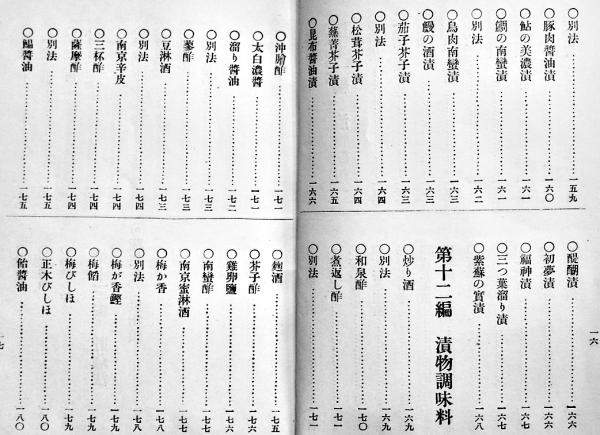 〇別法…………一五九
〇豚肉醬油漬…………一六〇
〇鮎の美濃漬…………一六一
〇鯛の南蠻漬…………一六一
〇別法…………一六二
〇鳥肉南蠻漬…………一六二
〇鰻の酒漬…………一六三
〇茄子芥子漬…………一六三
〇別法…………一六四
〇松茸芥子漬…………一六四
〇蕪菁芥子漬…………一六五
〇昆布醬油漬…………一六六
〇醍醐漬…………一六六
〇初夢漬…………一六六
〇福神漬…………一六七
〇三つ葉溜り漬…………一六七
〇紫蘇の實漬…………一六八
第十二編 漬物調味料
〇炒り酒…………一六九
〇別法…………一六九
〇和泉酢…………一七〇
〇煮返し酢…………一七一
〇別法…………一七一
一六
〇沖膾酢…………一七一
〇太白濃醬…………一七一
〇溜り醬油…………一七二
〇別法…………一七三
〇蓼酢…………一七三
〇豆淋酒…………一七三
〇別法…………一七四
〇南京辛皮…………一七四
〇三杯酢…………一七四
〇薩摩酢…………一七四
〇別法…………一七五
〇鰮醬油…………一七五
〇麹酒…………一七五
〇芥子酢…………一七六
〇雞卵鹽…………一七六
〇南蠻酢…………一七七
〇南京蜜淋酒…………一七七
〇梅か香…………一七八
〇別法…………一七八
〇梅が香鰹…………一七九
〇梅䭔…………一七九
〇梅びしほ…………一七九
〇正木びしほ…………一八〇
〇飴醬油…………一八〇
一七